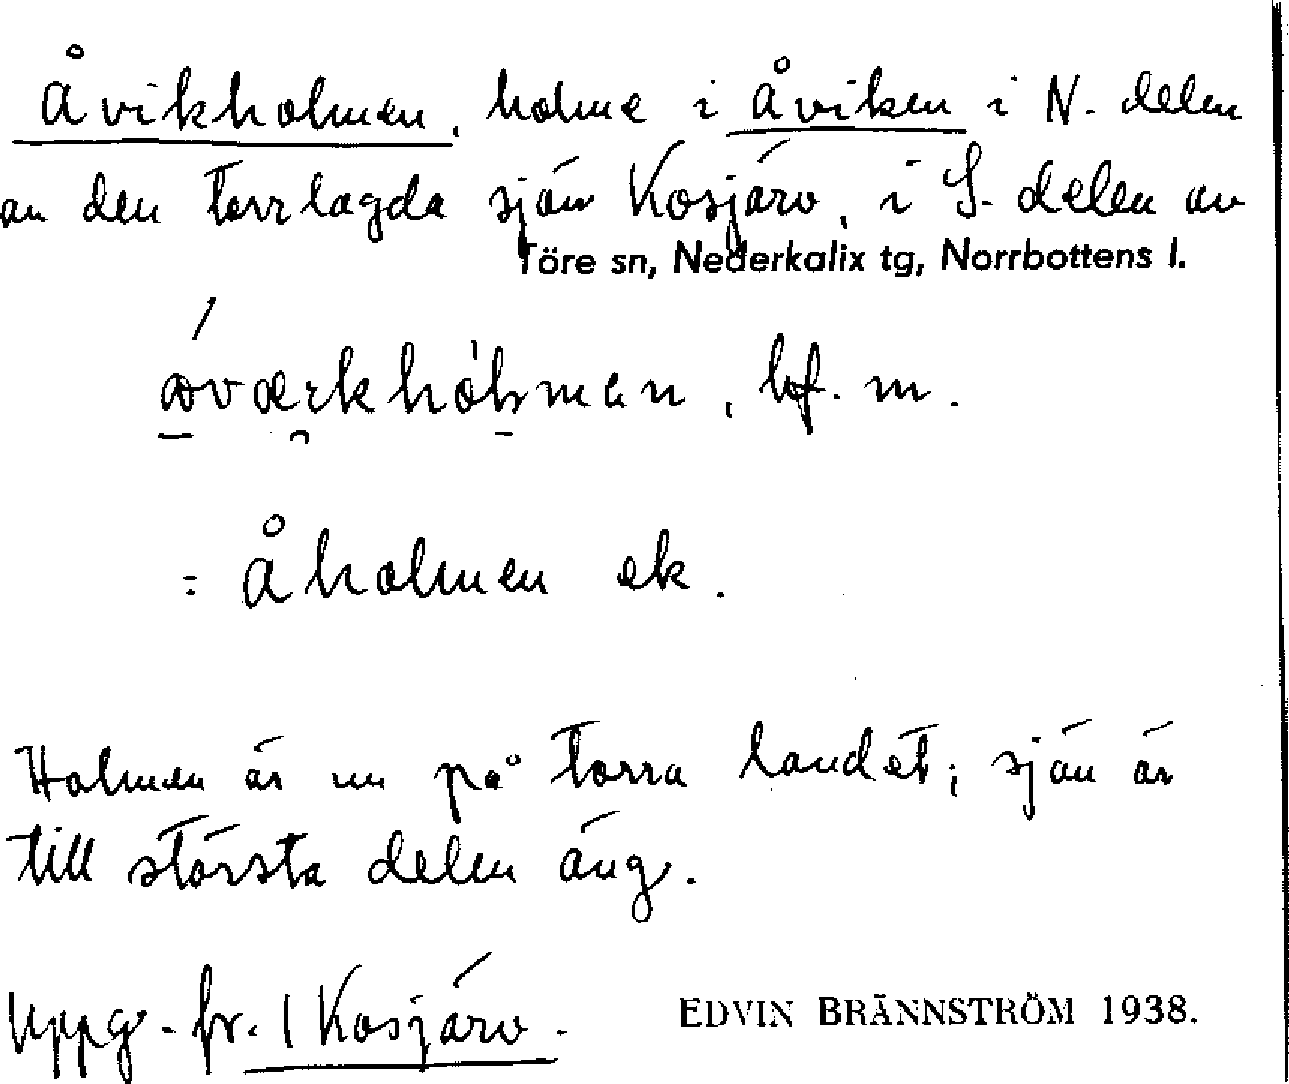 Åvikholmen, holme i Åviken i N. delen
av den torrlagda sjön Kosjärv, i S. delen av
Töre sn, Nederkalix tg, Norrbottens l.
bf. m.
= Åholmen ek.
Holmen är nu på torra landet; sjön är
till största delen äng.
Uppg. fr. 1 Kosjärv.
EDVIN BRÄNNSTRÖM 1938.